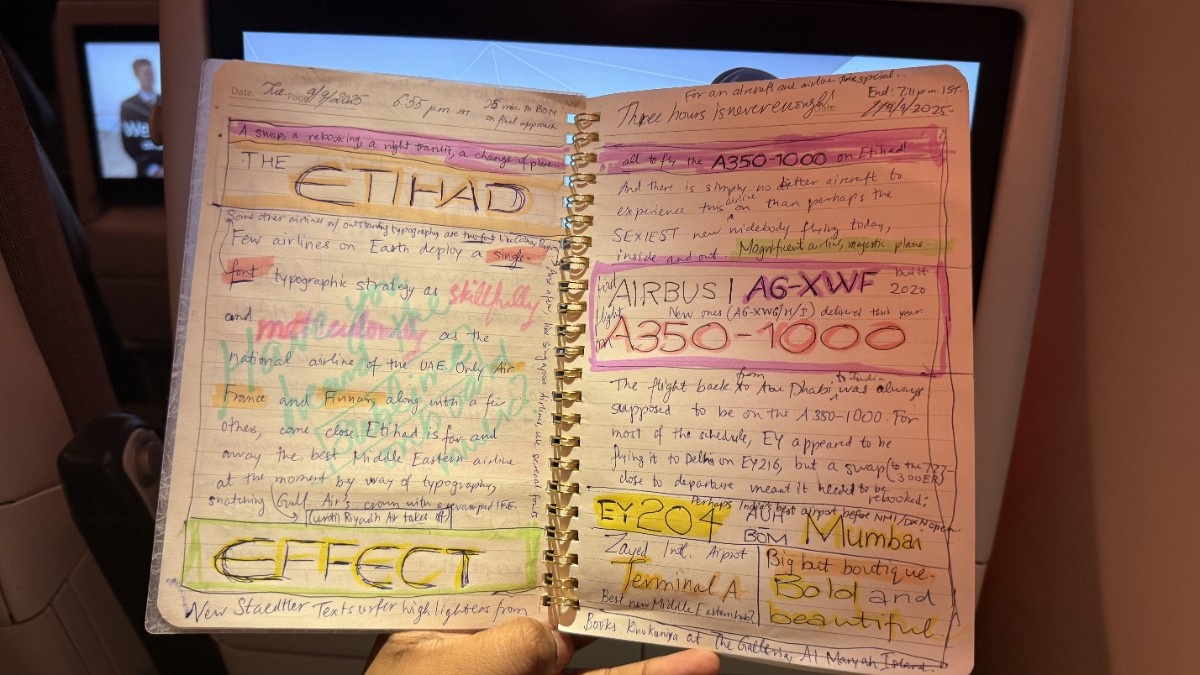 Date Tue 9/9/2025
6:55 pm IST
25 min. to BOM
on final approach
A swap, a rebooking, a night transit, a change of plane...
THE
ETIHAD
Some other airlines w/ outstanding typography are two-font like
Few airlines on Earth deploy a single-
font typographic strategy as skillfully
and meticulously as the
national airline of the UAE. Only Air
France and Finnair, along with a few
others, come close. Etihad is far and
away the best Middle Eastern airline
at the moment by way of typography,
snatching Gulf Air's crown with
(until Riyadh Air takes off)
EFFECT
New Staedtler Textsurfer highlighters from
Have you
heard the
onboard
music?
Singapore Airlines use several fonts
For an aircraft and airline this special...
Three hours is never enough!
End: 7:11 p.m. IST.
9/9/2025
all to fly the A350-1000 on Etihad!
And there is simply no better aircraft to
experience this airline on than perhaps the
SEXIEST new widebody flying today,
inside and out. Magnificent airline, majestic plane.
First
flight
on
AIRBUS | A6-XWF built
2020
New ones (A6-XWG/H/I) delivered this year
A350-1000
The flight back from to Abu Dhabi to India was always
supposed to be on the A350-1000. For
most of the schedule, EY appeared to be
flying it to Delhi on EY216, but a swap (to the 777-
300ER)
close to departure meant it needed to be
rebooked:
Perhaps India's best airport before NMI/DXN open
EY204
AUH
BOM
Mumbai
Zayed Intl. Airport
Terminal A
Best new Middle Eastern hub?
Big but boutique.
Bold and
beautiful.
Books Kinokuniya at The Galleria, Al Maryah Island.